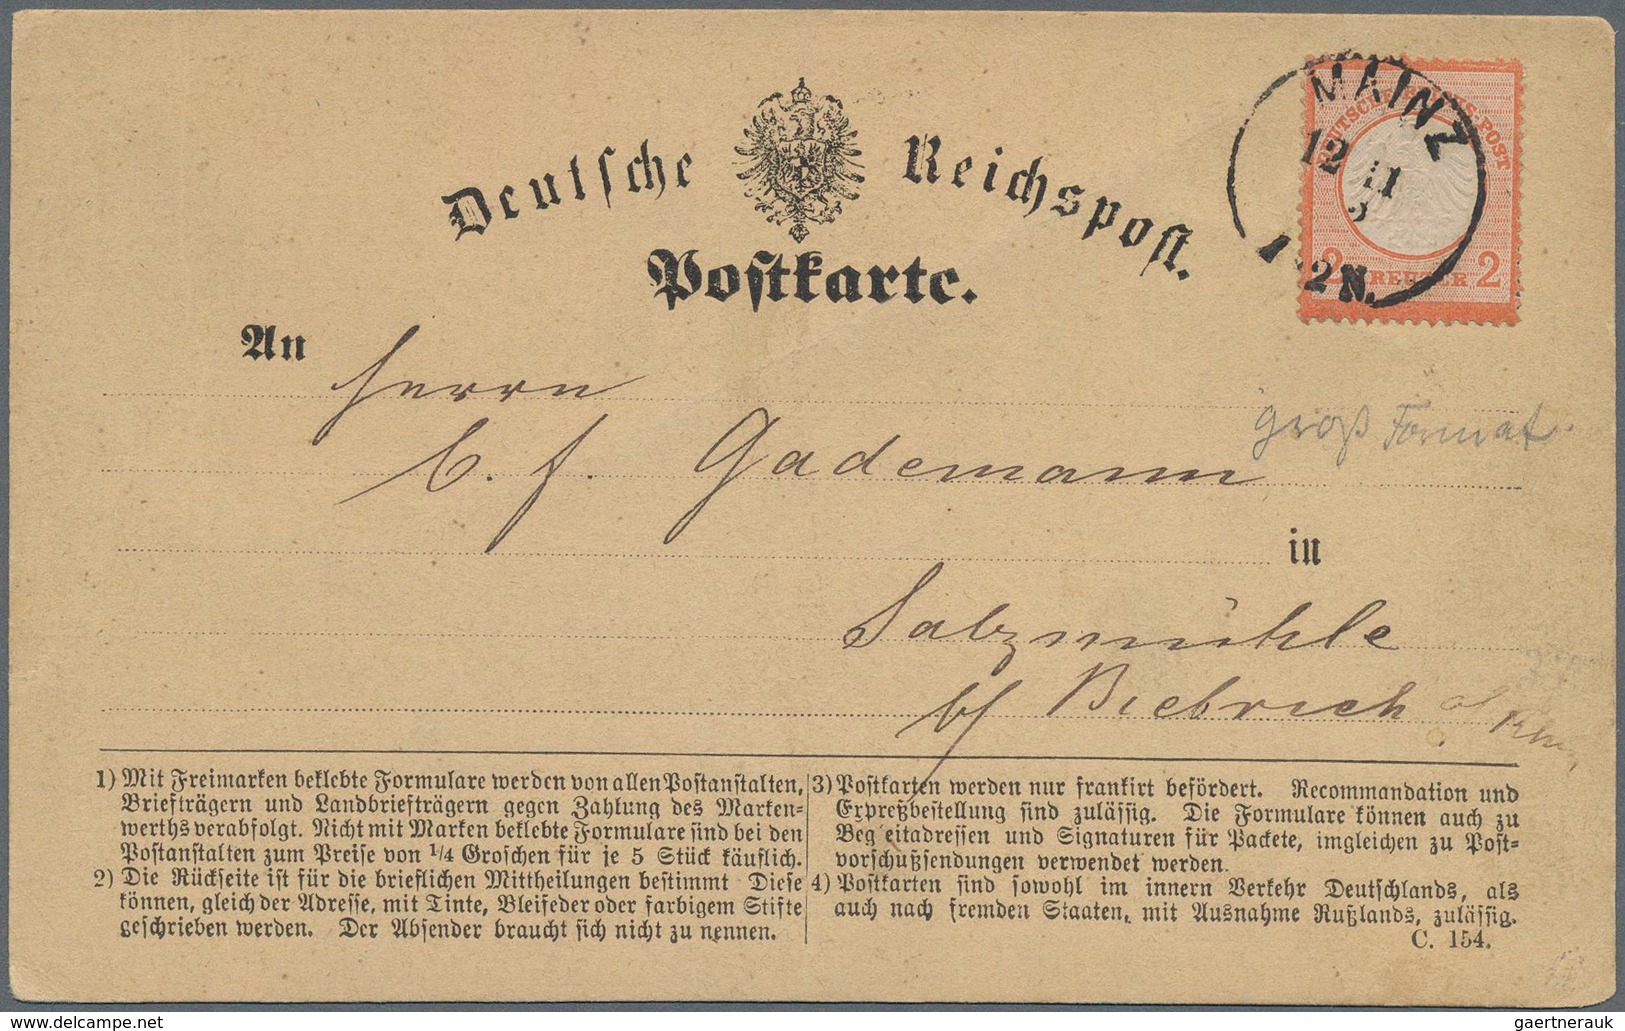 Deutsche Reichspost.
Postkarte.
MAINZ
12 11
1-2N.
DEUTSCHE REICHS-POST
2 KREUZER 2
An
Herrn
groß Format.
C. F. Gademann
in
Salzmühle
b/ Biebrich a/ Rhein
1) Mit Freimarken beklebte Formulare werden von allen Postanstalten,
Briefträgern und Landbriefträgern gegen Zahlung des Marken-
werths verabfolgt. Nicht mit Marken beklebte Formulare sind bei den
Postanstalten zum Preise von 1/4 Groschen für je 5 Stück käuflich.
2) Die Rückseite ist für die brieflichen Mittheilungen bestimmt Diese
können, gleich der Adresse, mit Tinte, Bleifeder oder farbigem Stifte
geschrieben werden. Der Absender braucht sich nicht zu nennen.
3) Postkarten werden nur frankirt befördert. Recommandation und
Expreßbestellung sind zulässig. Die Formulare können auch zu
Beg eitadressen und Signaturen für Packete, imgleichen zu Post-
vorschußsendungen verwendet werden.
4) Postkarten sind sowohl im innern Verkehr Deutschlands, als
auch nach fremden Staaten, mit Ausnahme Rußlands, zulässig.
C. 154.
delcampe.net
gaertnerauk